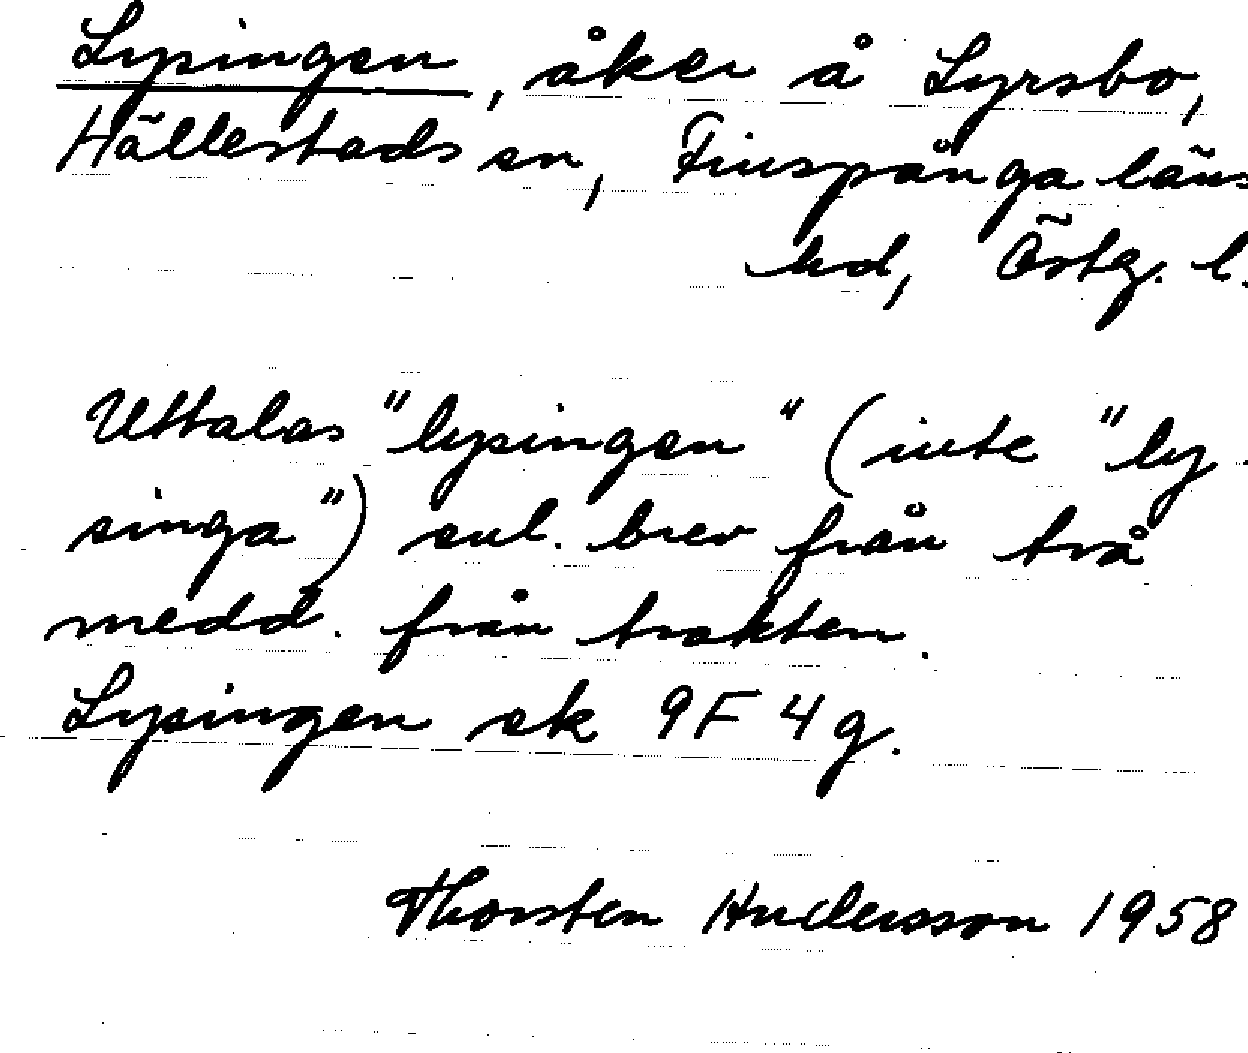 Lysingen, åker å Lyrsbo,
Hällestads sn, Finspånga läns
hd, Östg. l.
Uttalas "lysingen" (inte "ly-
singa") enl. brev från två
medd. från trakten.
Lysingen ek 9F 4g.
Thorsten Andersson 1958